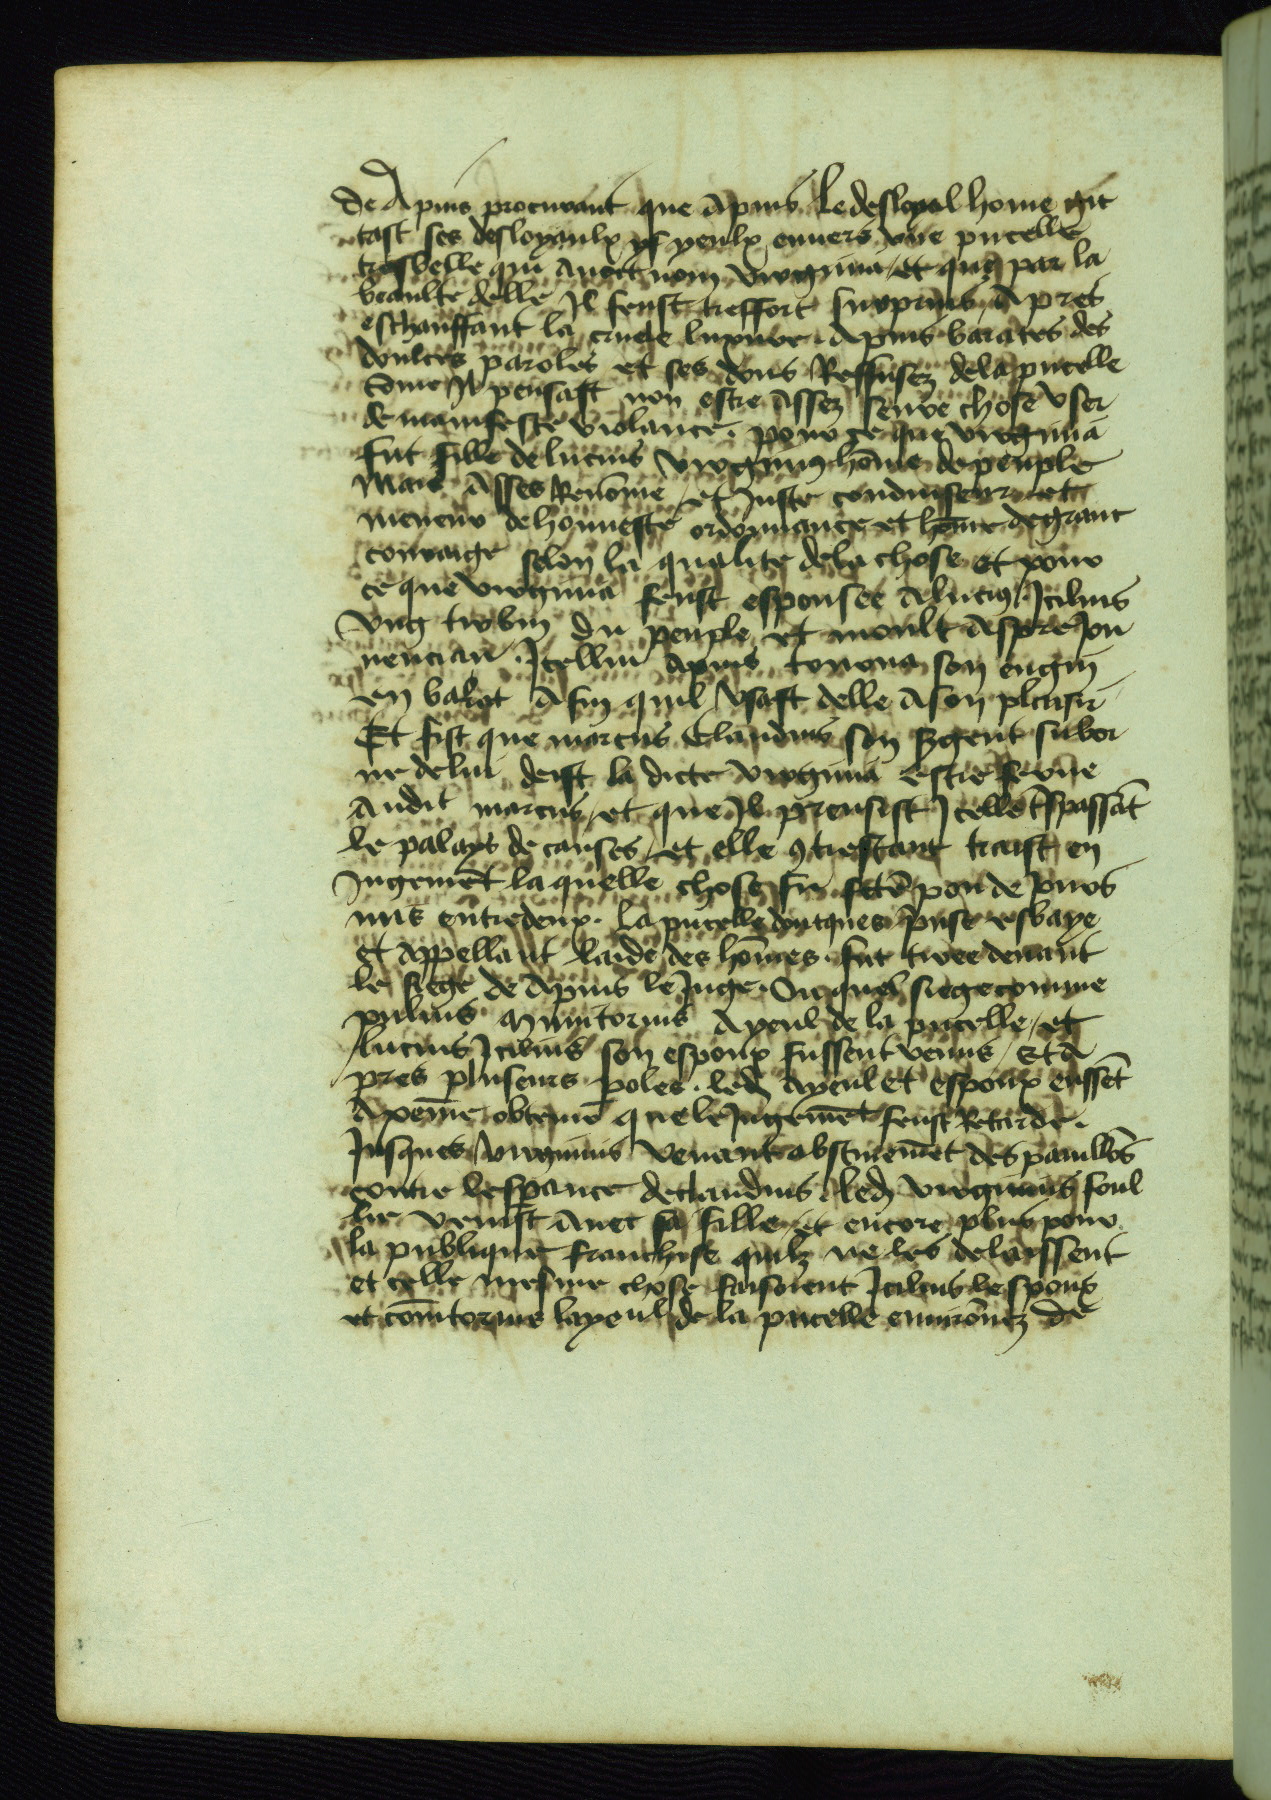 de Apius procurant que Apius le desloyal home git
tast ses desloyaulx yeulx enuers vne pucelle
tresbelle qui auoit nom virginia / et que par la
beaulte delle Il feust treffort surprins / Apres
eschauffant la cruele luxure . Apius barates des
doulces paroles et ses dons Reffusez dela pucelle
Come Il pensast non estre Assez seure chose vser
de manifeste violance . pour ce que virginia
fut fille de lucius virginius home de peuple
Mais Asses Renome / et Juste conduiseur et
meneur de honneste ordonnance et home de grant
couraige selon la qualite dela chose et pour
ce que virginia feust espousee A lucius Icilius
vng trebun du peuple et moult Aspre Jou
uencian . Icellui Apius tourna son engin
en barat Afin quil vsast delle A son plaisir
Et fist que marcus Claudius son sergent subor
ne de lui deist la dicte virginia estre serue
Audit marcus / et que Il prensist Icelle trespassat
le palays de causes / et elle 9trestant traist en
Jugement la quelle chose fu
mis entredeux . la pucelle doncques prise esbaye
et Appellant laide des homes . fut tiree deuant
le siege de Apius le Juge . Ou quel siege comme
publius Munitorius Ayeul de la pucelle / et
lucius Icilius son espoux fussent venus / Et A
pres pluseurs poles . led Ayeul et espoux eussent
A peine obtenu que le Jugement feust Retarde .
Jusques virginius venant des pauillons
contre lesperance de claudius . led virginius soul
venist Auec sa fille / et encore plus pour
la publique franchise quilz ne les delaissent
et celle mesme chose faisoient Icilius lespoux
et comitorius layeul de la pucelle enuironez de